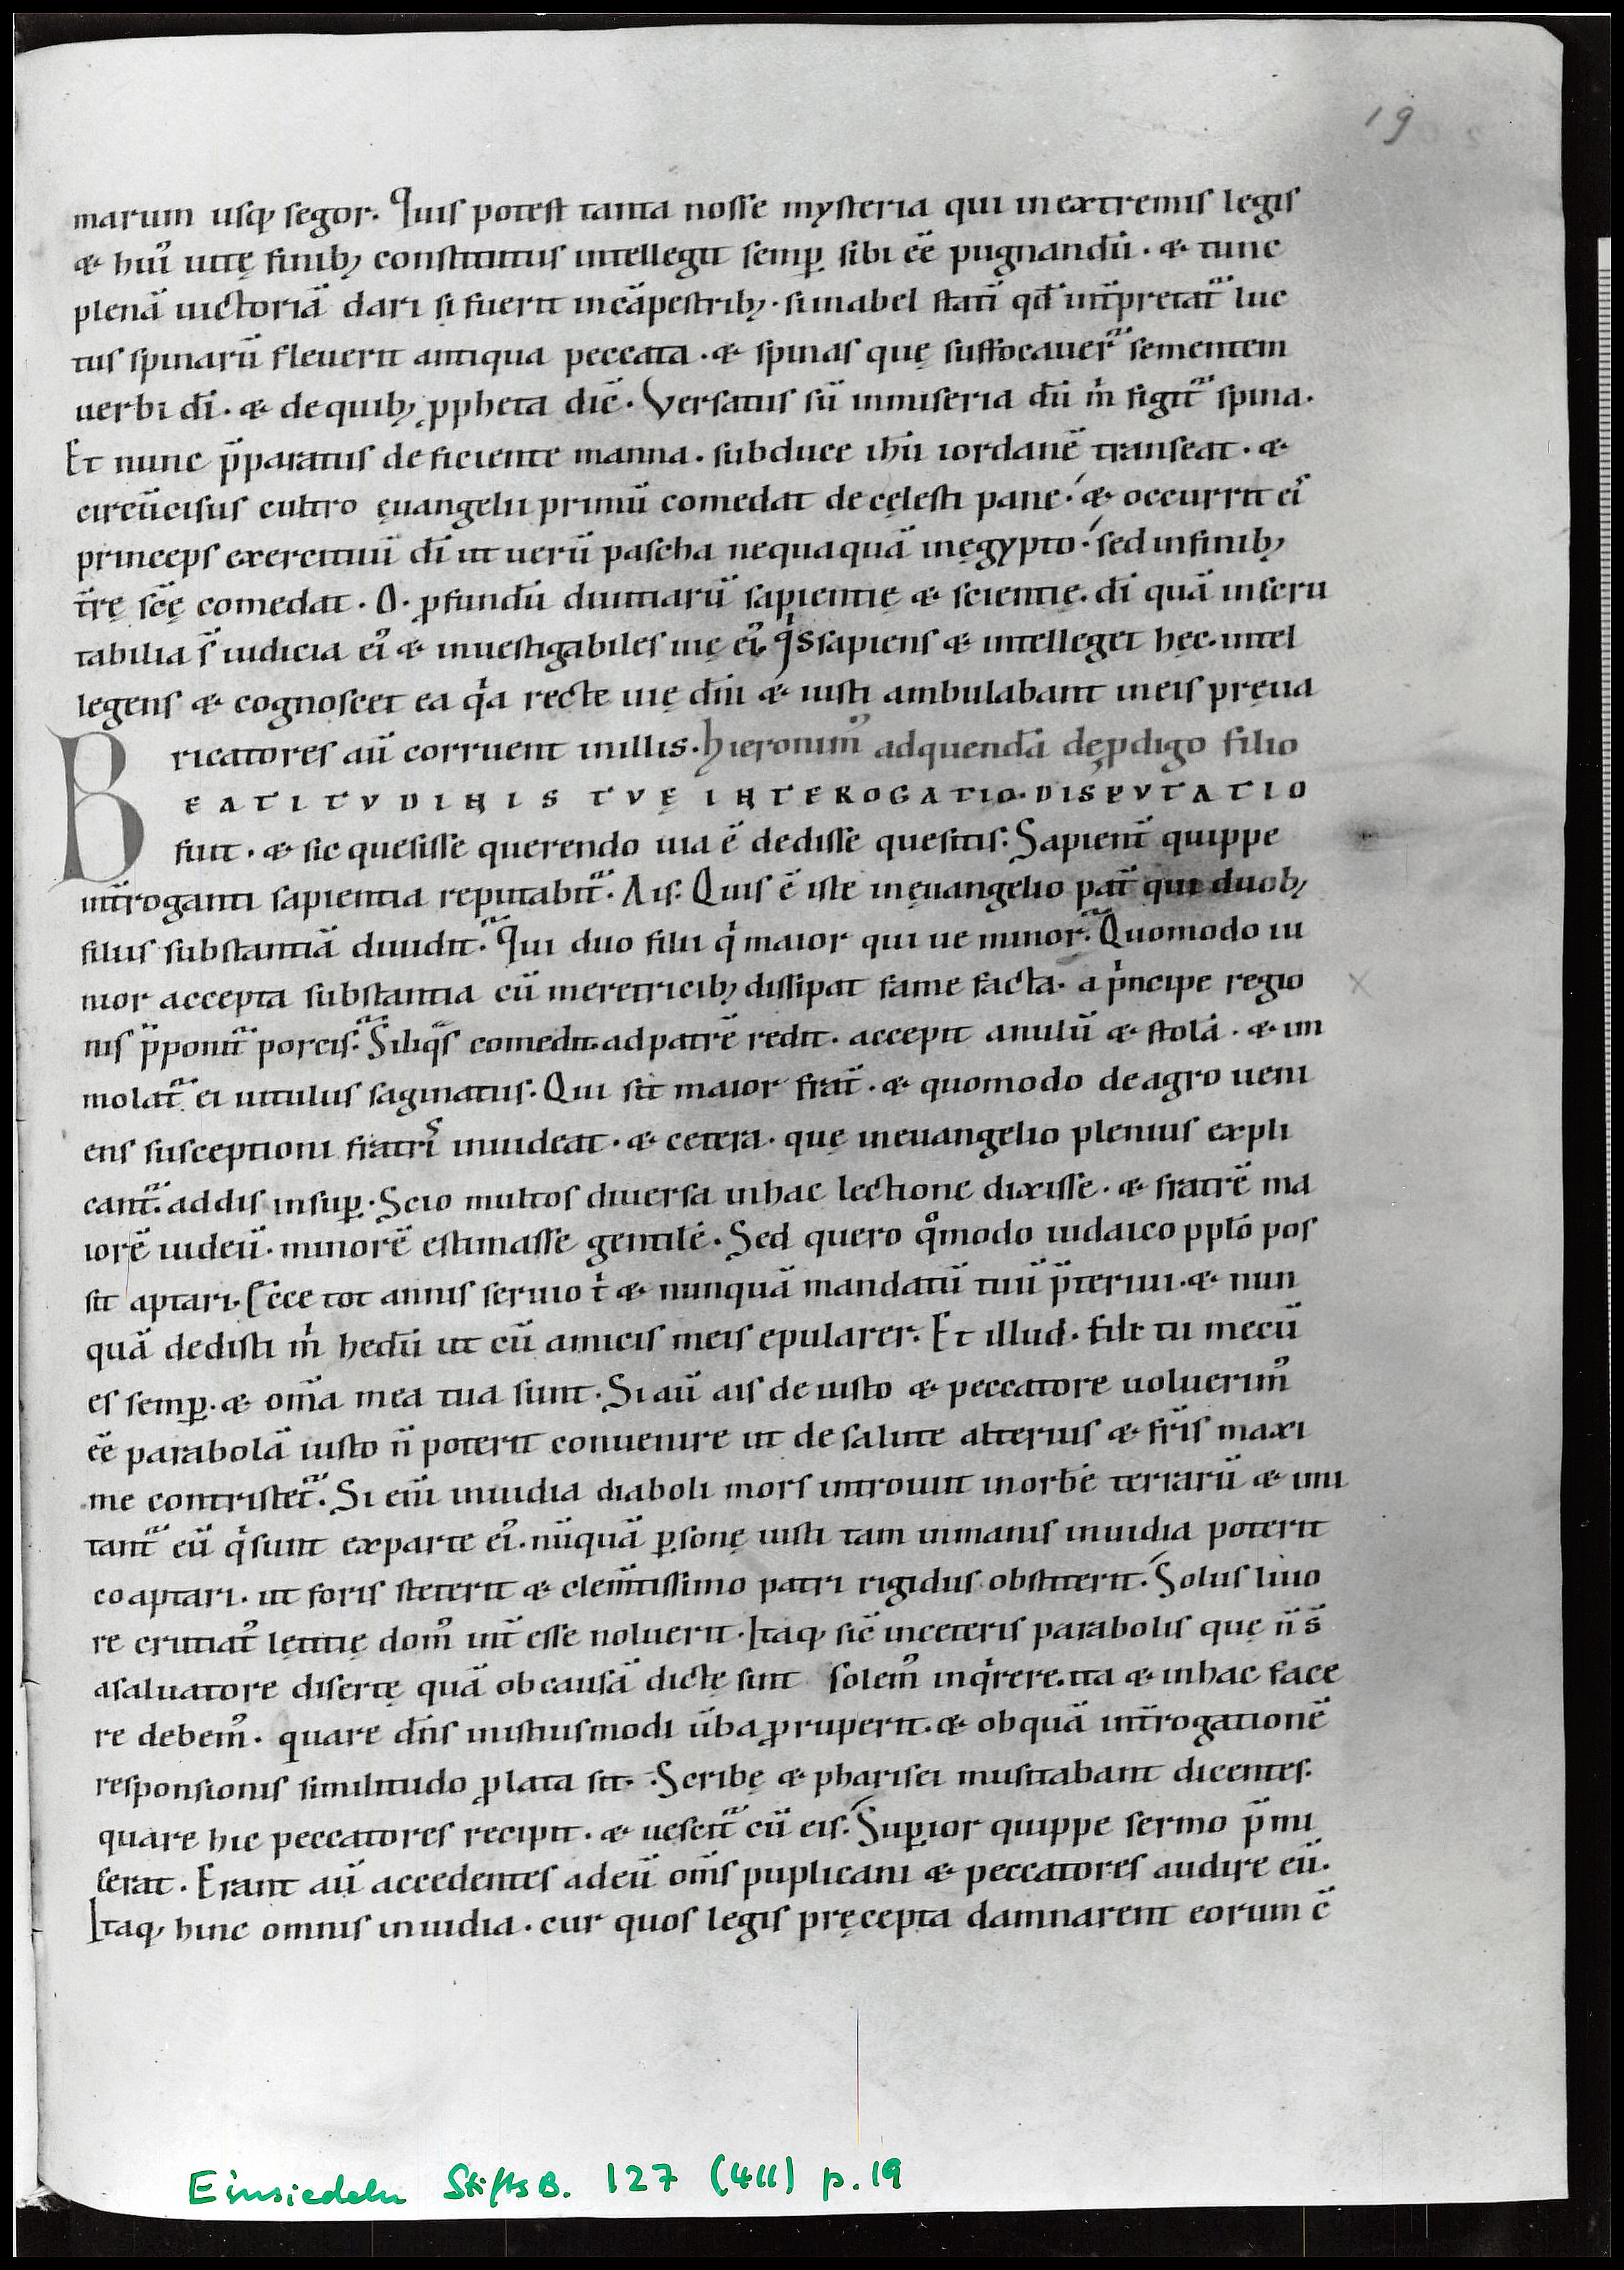 19
marum usq; segor. Quis potest tanta nosse mysteria qui in extremis legis
& hui᾿ uitę finib; constitutus intellegit semp̱ sibi eē̄ pugnandū. & tunc
plenā uictoriā dari si fuerit in cāpestrib;. sunabel statī qđ int̄pretat᷑ luc
tus spinarū fleuerit antiqua peccata. & spinas quę suffocauer᷑ sementem
uerbi dī. & de quib; ꝓpheta dic̄. Versatus sū in miseria dū m̄ figit᷑ spina.
Et nunc p̄paratus deficiente manna. subduce ihū iordanē transeat. &
circūcisus cultro ęuangelii primū comedat de cęlesti pane. & occurrit ei᾿
princeps exercituū dī ut uerū pascha nequaquā in ęgypto. sed in finib;
t̄rę scę̄ comedat. O. ꝓfundū diuitiarū sapientię & scientię. dī quā inscru
tabilia s̄ iudicia ei᾿ & inuestigabiles uię ei᾿. Qͥs sapiens & intelleget hęc. intel
legens & cognoscet ea qͥa recte uię dn̄i & iusti ambulabant in eis pręua
ricatores aū corruent in illis. Hieronim᾿ ad quendā de ꝓdigo filio
BEATITVDINIS TVĘ INTEROGATIO. DISPVTATIO
fuit. & sic quesisse querendo uia ē dedisse quesitis. Sapient̄ quippe
int̄roganti sapientia reputabit᷑. Ais. Quis ē iste in ęuangelio pat̄ qui duob;
filiis substantiā diuidit. Qui duo filii qͥ maior qui ue minor. Quomodo iu
nior accepta substantia cū meretricib; dissipat fame facta. a pͥncipe regio
nis p̄ponit᷑ porcis. Siliqᵃs comedit. ad patrē redit. accepit anulū & stolā. & im
molat᷑ ei uitulus saginatus. Qui sit maior frat̄. & quomodo de agro ueni
ens susceptioni fratri᾿ inuideat. & cetera. quę in euangelio plenius expli
cant᷑. addis insup̱. Scio multos diuersa in hac lectione dixisse. & fratrē ma
iorē iudeū. minorē estimasse gentilē. Sed quero qᵒmodo iudaico pplō pos
sit aptari. Ecce tot annis seruio tͥ & nunquā mandatū tuū p̄teriui. & nun
quā dedisti mͥ hedū ut cū amicis meis epularer. Et illud. fili tu mecū
es semp̱. & om̄a mea tua sunt. Si aū ais de iusto & peccatore uoluerim᾿
eē̄ parabolā iusto n̄ poterit conuenire ut de salute alterius & fr̄is maxi
me contristet᷑. Si eni̅ inuidia diaboli mors introiuit in orbē terrarū & imi
tant᷑ eū qͥ sunt ex parte ei᾿. nūquā p̱sonę iusti tam inmanis inuidia poterit
coaptari. ut foris steterit & clem̄tissimo patri rigidus obstiterit. Solus liuo
re cruciat᾿ lętitię dom᾿ int̄ esse noluerit. Itaq; sic̄ in ceteris parabolis quę n̄ s̄
a saluatore disertę quā ob causā dictę sint solem᾿ inqͥrere. ita & in hac face
re debem᾿. quare dn̄s in istiusmodi ūba ꝓruperit. & ob quā int̄rogationē
responsionis similitudo ꝓlata sit. Scribę & pharisei musitabant dicentes.
quare hic peccatores recipit. & uescit᷑ cū eis. Sup̱ior quippe sermo p̄mi
serat. Erant aū accedentes ad eū om̄s puplicani & peccatores audire eū.
Itaq; hinc omnis inuidia. cur quos legis pręcepta damnarent eorum c̄
Einsiedeln StiftsB. 127 (411) p. 19